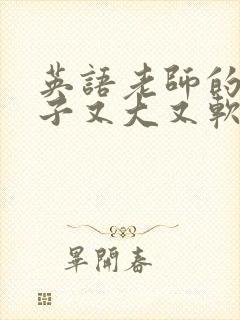 英語老師的
子又大又軟
畢開春